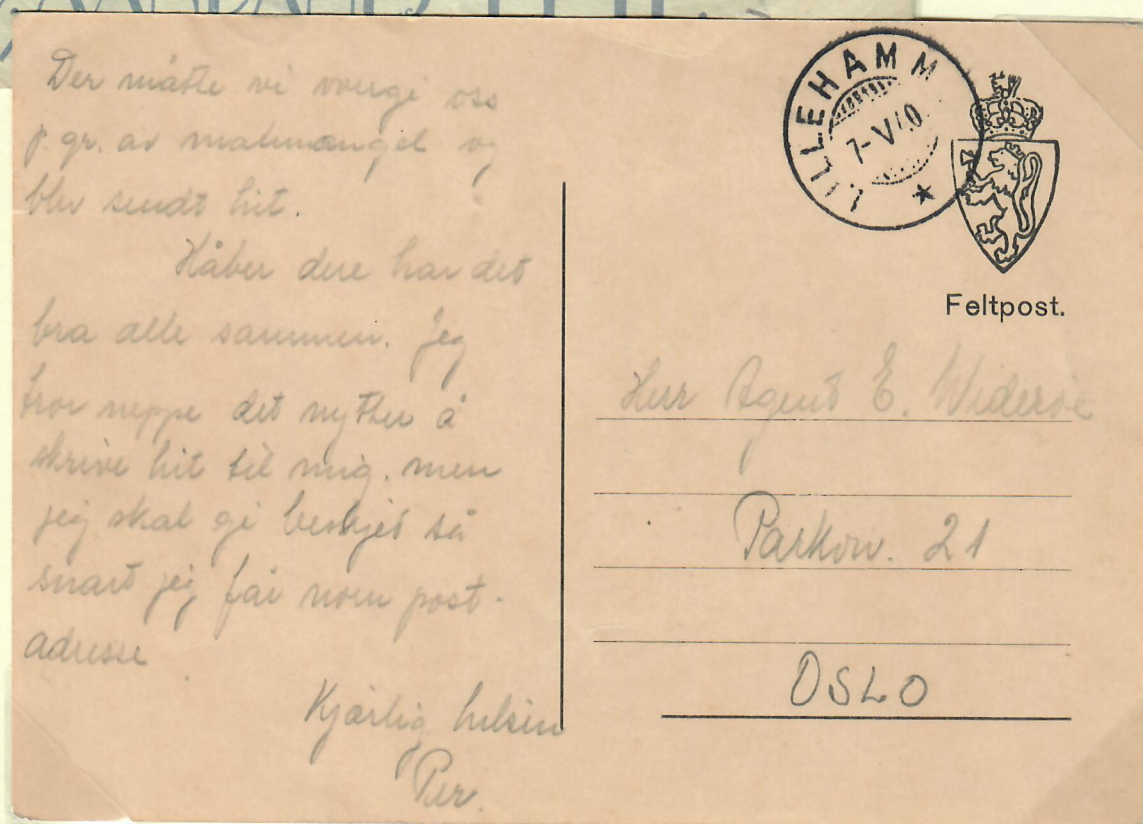 Der måtte vi overgi oss
p. gr. av matmangel og
blev sendt hit.
Håber dere har det
bra alle sammen. Jeg
tror neppe det nytter å
skrive hit til mig. men
jeg skal gi beskjed så
snart jeg får noen post-
adresse
Kjærlig hilsen
Per.
LILLEHAMM
7-V 40
Feltpost.
Herr Agent E. Widerøe
Parkv. 21
OSLO